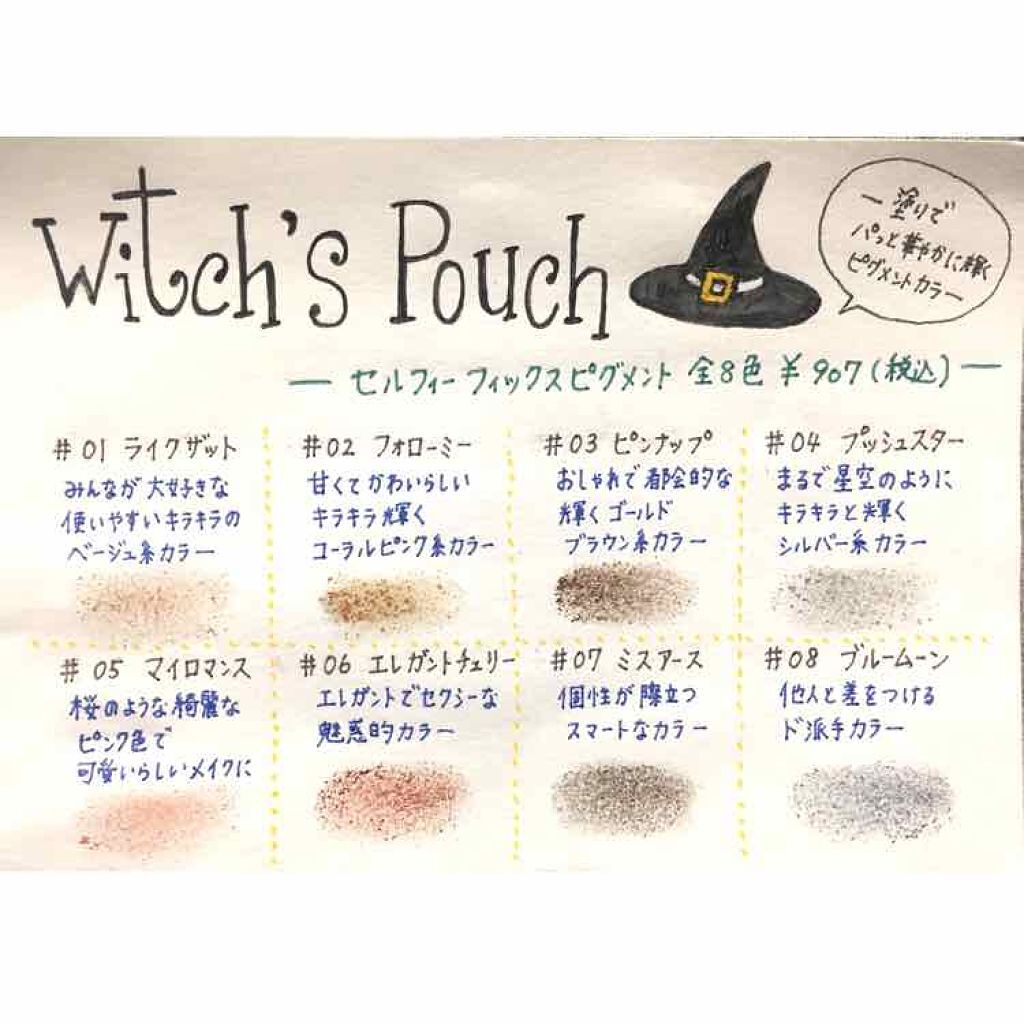 Witch's Pouch
一塗りで
パっと華やかに輝く
ピグメントカラー
― セルフィーフィックスピグメント 全8色 ¥907(税込) ―
#01 ライクザット
みんなが大好きな
使いやすいキラキラの
ベージュ系カラー
#02 フォローミー
甘くてかわいらしい
キラキラ輝く
コーラルピンク系カラー
#03 ピンナップ
おしゃれで都会的な
輝くゴールド
ブラウン系カラー
#04 プッシュスター
まるで星空のように
キラキラと輝く
シルバー系カラー
#05 マイロマンス
桜のような綺麗な
ピンク色で
可愛いらしいメイクに
#06 エレガントチェリー
エレガントでセクシーな
魅惑的カラー
#07 ミスアース
個性が際立つ
スマートなカラー
#08 ブルームーン
他人と差をつける
ド派手カラー